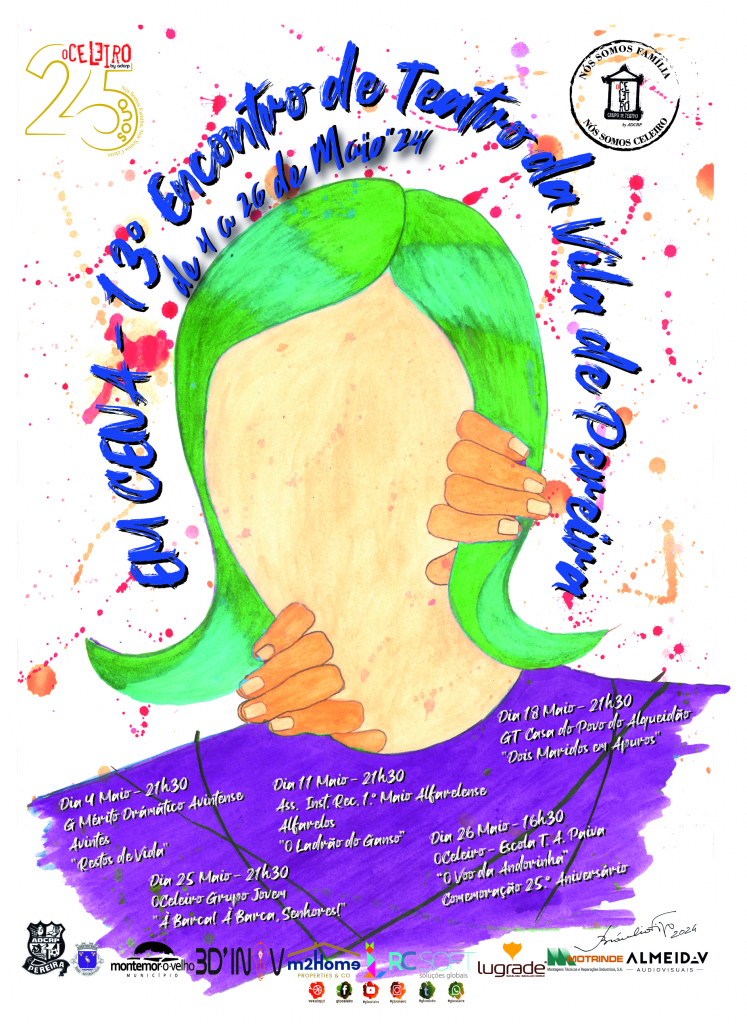 OCELEIRO
by adcrp
25 anos
NÓS SOMOS FAMÍLIA
OCELEIRO
GRUPO DE TEATRO
by ADCRP
NÓS SOMOS CELEIRO
EM CENA - 13º Encontro de Teatro da Vila de Pereira
de 4 a 26 de Maio'24
Dia 18 Maio - 21h30
GT Casa do Povo do Alqueidão
"Dois Maridos em Apuros"
Dia 4 Maio - 21h30
G Mérito Drámático Avintense
Avintes
"Restos de Vida"
Dia 11 Maio - 21h30
Ass. Inst. Rec. 1.º Maio Alfarelense
Alfarelos
"O Ladrão do Ganso"
Dia 26 Maio - 16h30
OCeleiro - Escola T. A. Paiva
"O Voo da Andorinha"
Comemoração 25.º Aniversário
Dia 25 Maio - 21h30
OCeleiro Grupo Jovem
"À Barca! À Barca, Senhores!"
2024
ADCRP
PEREIRA
montemor-o-velho
MUNICÍPIO
3D'INOV
m2Home
PROPERTIES & CO.
RCSOFT
soluções globais
lugrade
MOTRINDE
Montagens Técnicas e Reparações Industriais, S.A.
ALMEIDAV
AUDIOVISUAIS